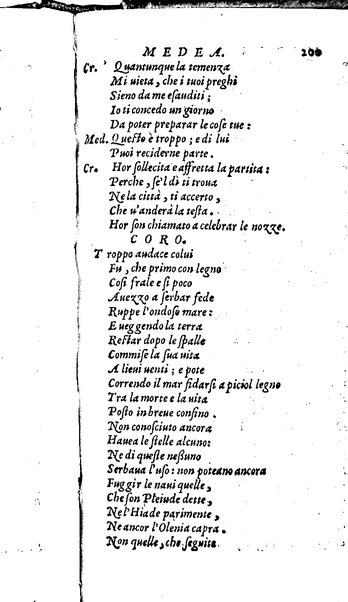 MEDEA. 200
Cr. Quantunque la temenza
Mi uieta, che i tuoi preghi
Sieno da me eſauditi;
Io ti concedo un giorno
Da poter preparar le coſe tue:
Med. Queſto è troppo; e di lui
Puoi reciderne parte.
Cr. Hor ſollecita e affretta la partita:
Perche, ſe'l dì ti troua
Ne la città, ti accerto,
Che u'anderà la teſta.
Hor ſon chiamato a celebrar le nozze.
CORO.
Troppo audace colui
Fu, che primo con legno
Coſi frale e ſi poco
Auezzo a ſerbar fede
Ruppe l'ondoſo mare:
E ueggendo la terra
Reſtar dopo le ſpalle
Commiſe la ſua uita
A lieui uenti; e pote
Correndo il mar fidarſi a picìol legno
Tra la morte e la uita
Poſto in breue confino.
Non conoſciuto ancora
Hauea le ſtelle alcuno:
Ne di queſte neſſuno
Serbaua l'uſo: non poteano ancora
Fuggir le naui quelle,
Che ſon Pleiude dette,
Ne l'Hiade parimente,
Ne ancor l'Olenia capra.
Non quelle, che ſeguita